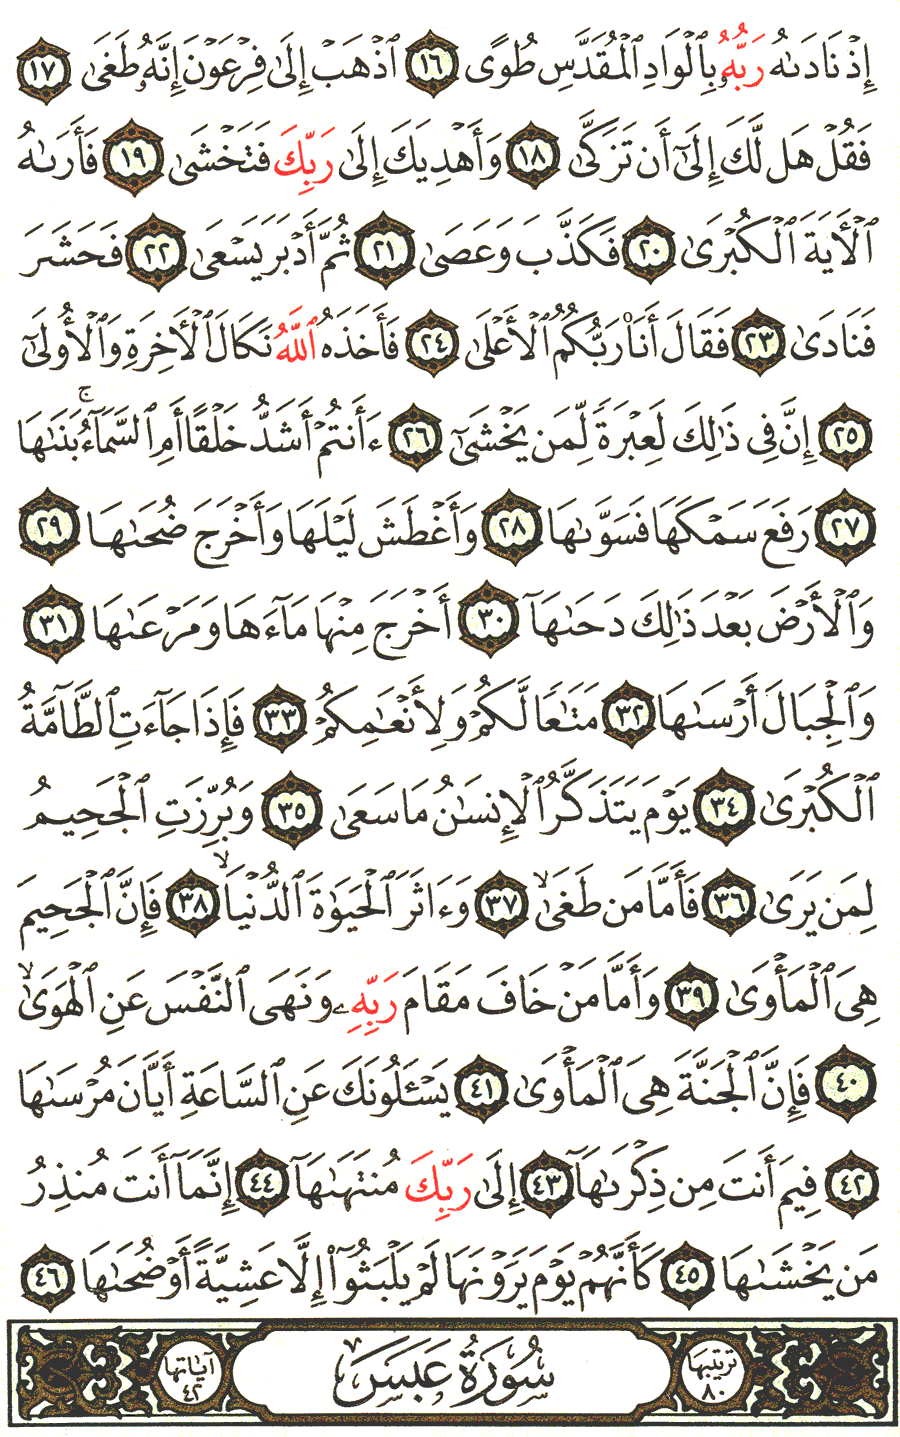 إِذْ نَادَىٰهُ رَبُّهُۥ بِٱلْوَادِ ٱلْمُقَدَّسِ طُوًى ١٦ ٱذْهَبْ إِلَىٰ فِرْعَوْنَ إِنَّهُۥ طَغَىٰ ١٧
فَقُلْ هَل لَّكَ إِلَىٰٓ أَن تَزَكَّىٰ ١٨ وَأَهْدِيَكَ إِلَىٰ رَبِّكَ فَتَخْشَىٰ ١٩ فَأَرَىٰهُ
ٱلْأٓيَةَ ٱلْكُبْرَىٰ ٢٠ فَكَذَّبَ وَعَصَىٰ ٢١ ثُمَّ أَدْبَرَ يَسْعَىٰ ٢٢ فَحَشَرَ
فَنَادَىٰ ٢٣ فَقَالَ أَنَا۠ رَبُّكُمُ ٱلْأَعْلَىٰ ٢٤ فَأَخَذَهُ ٱللَّهُ نَكَالَ ٱلْأٓخِرَةِ وَٱلْأُولَىٰٓ
٢٥ إِنَّ فِى ذَٰلِكَ لَعِبْرَةً لِّمَن يَخْشَىٰٓ ٢٦ ءَأَنتُمْ أَشَدُّ خَلْقًا أَمِ ٱلسَّمَآءُ ۚ بَنَىٰهَا
٢٧ رَفَعَ سَمْكَهَا فَسَوَّىٰهَا ٢٨ وَأَغْطَشَ لَيْلَهَا وَأَخْرَجَ ضُحَىٰهَا ٢٩
وَٱلْأَرْضَ بَعْدَ ذَٰلِكَ دَحَىٰهَآ ٣٠ أَخْرَجَ مِنْهَا مَآءَهَا وَمَرْعَىٰهَا ٣١
وَٱلْجِبَالَ أَرْسَىٰهَا ٣٢ مَتَٰعًا لَّكُمْ وَلِأَنْعَٰمِكُمْ ٣٣ فَإِذَا جَآءَتِ ٱلطَّآمَّةُ
ٱلْكُبْرَىٰ ٣٤ يَوْمَ يَتَذَكَّرُ ٱلْإِنسَٰنُ مَا سَعَىٰ ٣٥ وَبُرِّزَتِ ٱلْجَحِيمُ
لِمَن يَرَىٰ ٣٦ فَأَمَّا مَن طَغَىٰ ۙ ٣٧ وَءَاثَرَ ٱلْحَيَوٰةَ ٱلدُّنْيَا ۙ ٣٨ فَإِنَّ ٱلْجَحِيمَ
هِىَ ٱلْمَأْوَىٰ ٣٩ وَأَمَّا مَنْ خَافَ مَقَامَ رَبِّهِۦ وَنَهَى ٱلنَّفْسَ عَنِ ٱلْهَوَىٰ ۙ
٤٠ فَإِنَّ ٱلْجَنَّةَ هِىَ ٱلْمَأْوَىٰ ٤١ يَسْـَٔلُونَكَ عَنِ ٱلسَّاعَةِ أَيَّانَ مُرْسَىٰهَا
٤٢ فِيمَ أَنتَ مِن ذِكْرَىٰهَآ ٤٣ إِلَىٰ رَبِّكَ مُنتَهَىٰهَآ ٤٤ إِنَّمَآ أَنتَ مُنذِرُ
مَن يَخْشَىٰهَا ٤٥ كَأَنَّهُمْ يَوْمَ يَرَوْنَهَا لَمْ يَلْبَثُوٓا۟ إِلَّا عَشِيَّةً أَوْ ضُحَىٰهَا ٤٦
ترتيبها ٨٠ سُورَةُ عَبَسَ آياتها ٤٢